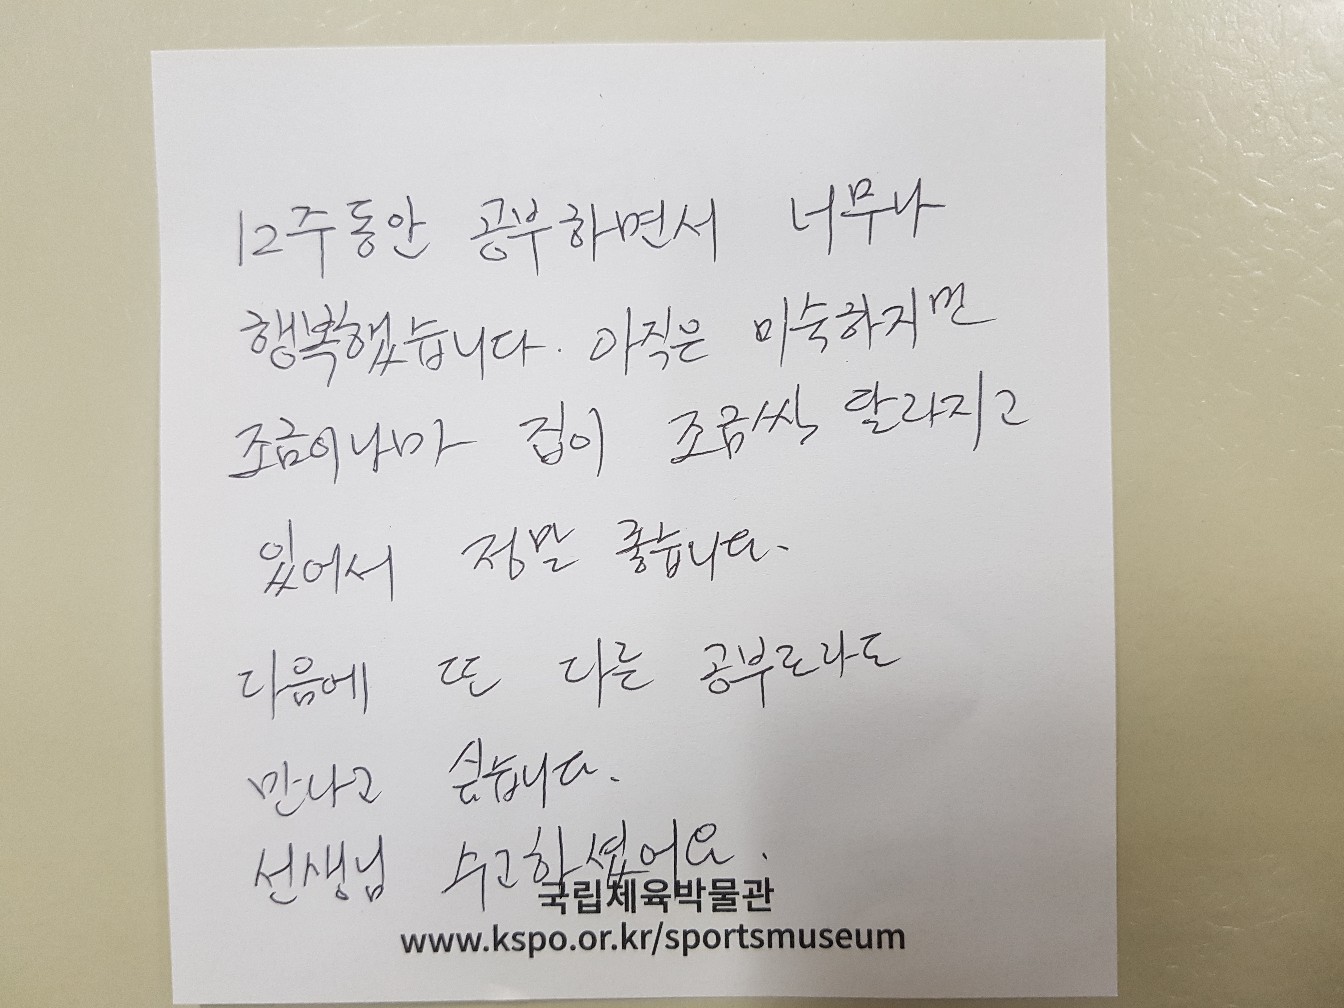 12주동안 공부하면서 너무나
행복했습니다. 아직은 미숙하지만
조금이나마 집이 조금씩 달라지고
있어서 정말 좋습니다.
다음에 또 다른 공부로라도
만나고 싶습니다.
선생님 수고하셨어요.
국립체육박물관
www.kspo.or.kr/sportsmuseum